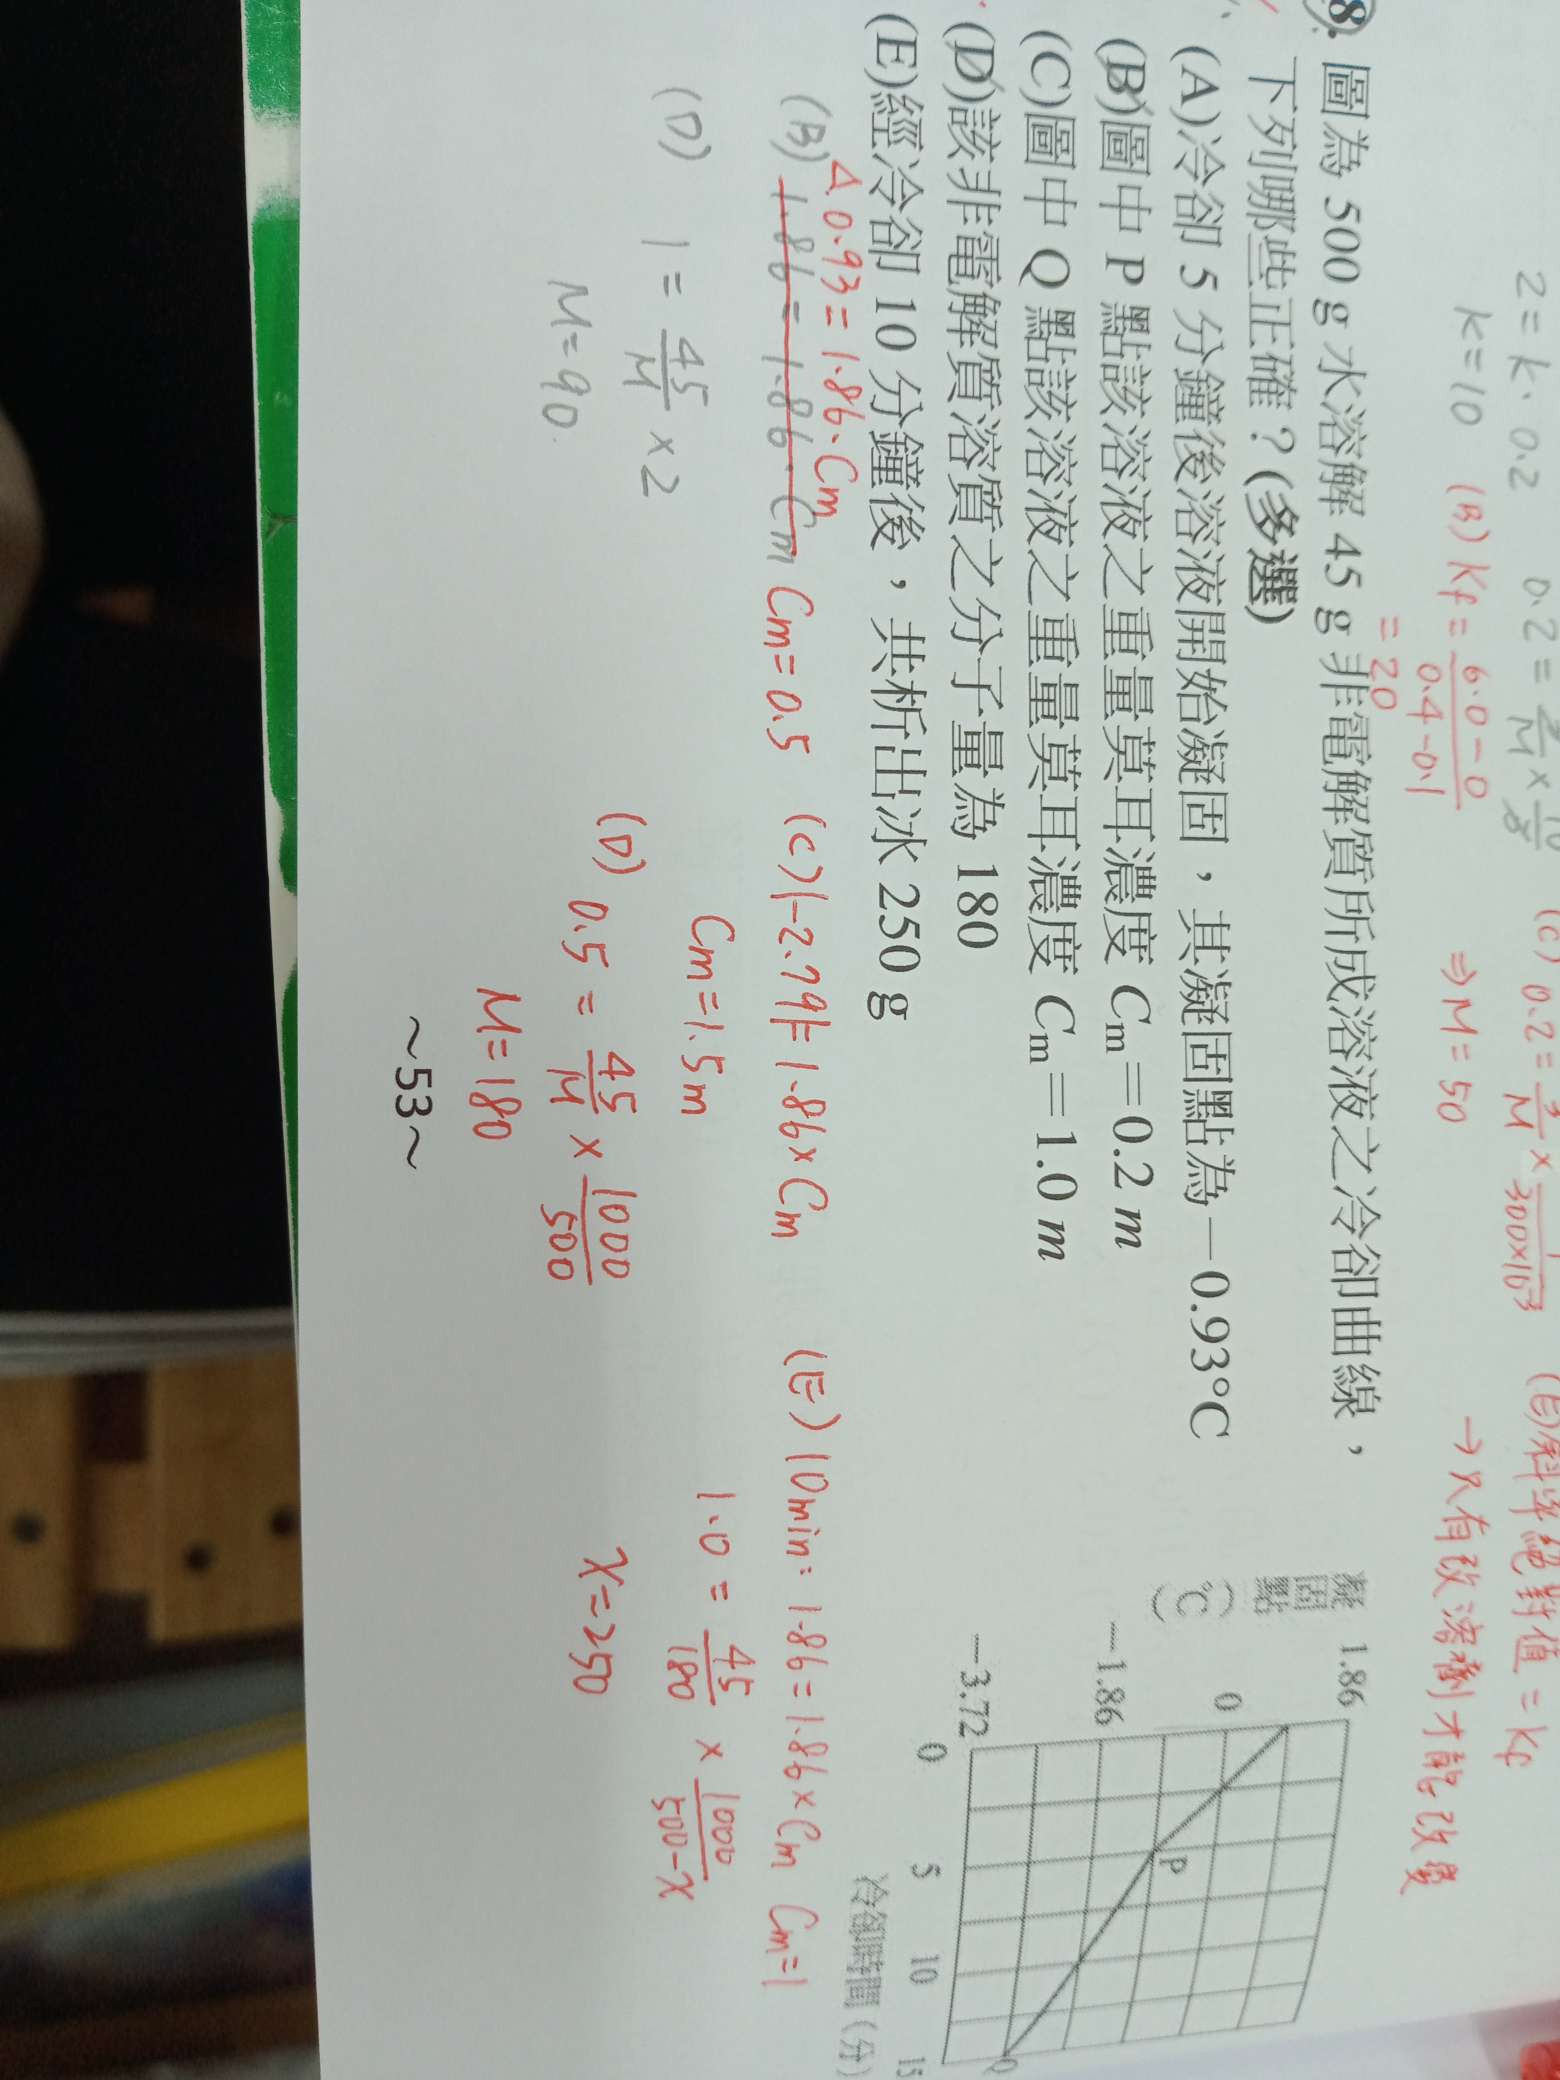 2 = k · 0.2
k = 10
(B) Kf = 6.0 - 0 / 0.4 - 0.1
= 20
⇒ M = 50
(C) 0.2 = 2/M × 1/300×10⁻³
(E) 斜率絕對值 = Kf
→ 只有改溶劑才能改變
8. 圖為 500 g 水溶解 45 g 非電解質所成溶液之冷卻曲線，
下列哪些正確？(多選)
(A)冷卻 5 分鐘後溶液開始凝固，其凝固點為－0.93°C
(B)圖中 P 點該溶液之重量莫耳濃度 Cm＝0.2 m
(C)圖中 Q 點該溶液之重量莫耳濃度 Cm＝1.0 m
(D)該非電解質溶質之分子量為 180
(E)經冷卻 10 分鐘後，共析出冰 250 g
凝固點(°C)
1.86
0
－1.86
－3.72
P
Q
0 5 10 15
冷卻時間（分）
Δ 0.93 = 1.86 · Cm
(B) 1.86 = 1.86 · Cm Cm = 0.5
(C) |-2.79| = 1.86 × Cm
Cm = 1.5m
(E) 10min: 1.86 = 1.86 × Cm Cm = 1
1.0 = 45/180 × 1000/500-x
x = 250
(D) 1 = 45/M × 2
M = 90
(D) 0.5 = 45/M × 1000/500
M = 180
～53～